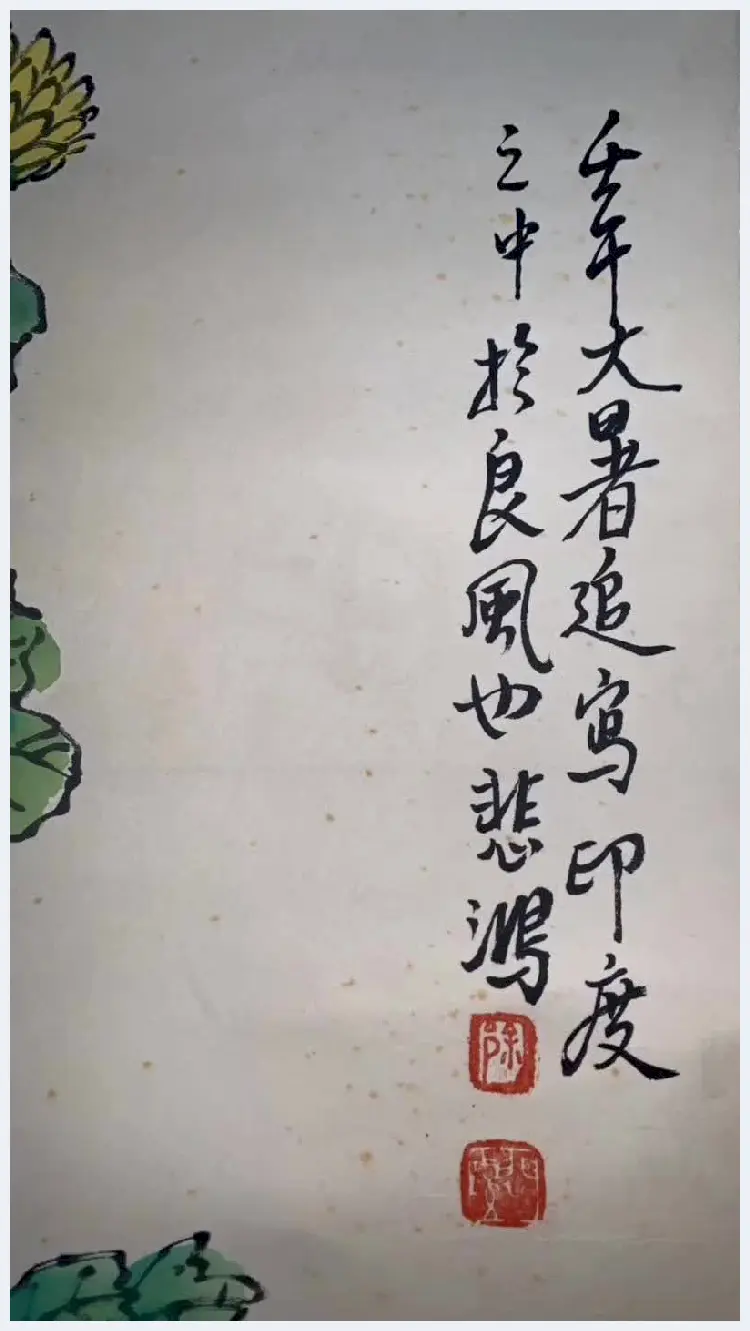 壬午大暑追寫印度
之中於良風也悲鴻
徐